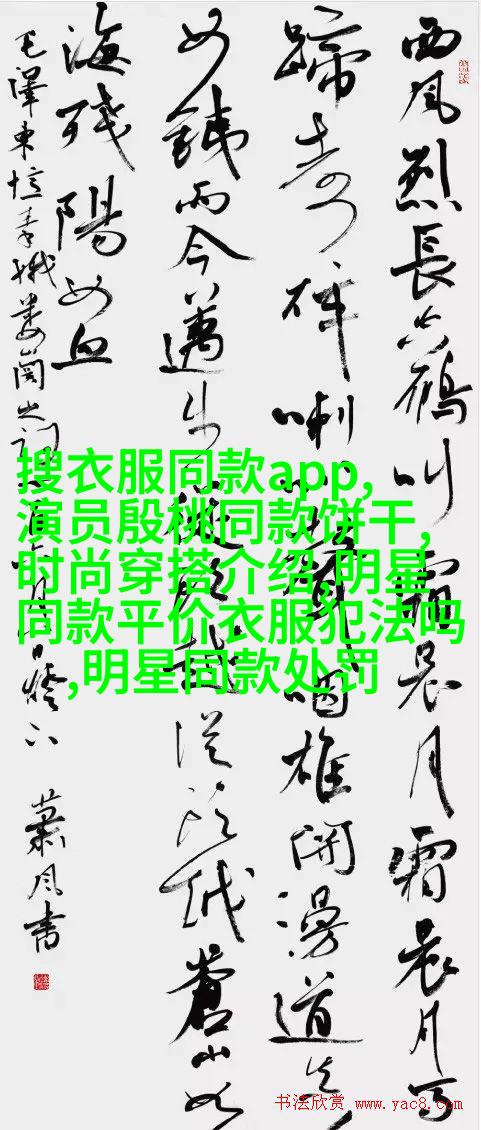 西风烈長空鴈叫霜晨月霜晨月马
蹄声碎喇叭聲咽雄関漫道真
如鐵而今邁步從頭越從頭越蒼山如
海残陽如血
毛澤東憶秦娥娄関之词 燈下 萧风書
搜衣服同款app,
演员殷桃同款饼干,
时尚穿搭介绍,明星
同款平价衣服犯法吗
,明星同款处罚
书法欣赏 www.yac8.com